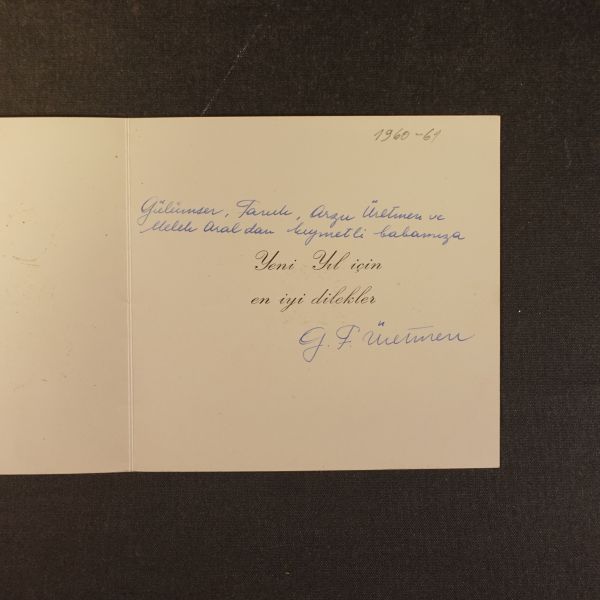 1960-61
Gülümser, Faruk, Arzu Üretmen ve
Melek Aral dan kıymetli babamıza
Yeni Yıl için
en iyi dilekler
G. F. Üretmen